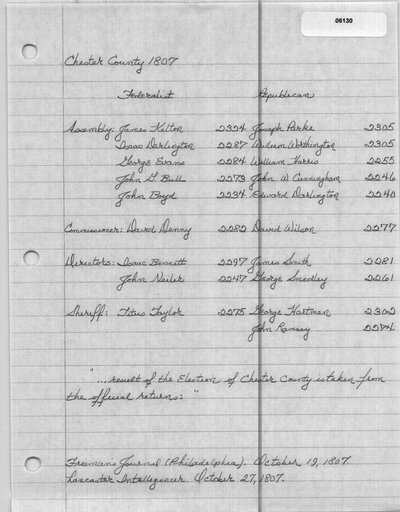 06130
Chester County 1807
Federalist Republican
Assembly: James Kelton 2324 Joseph Parke 2305
Isaac Darlington 2287 William Worthington 2305
George Evans 2284 William Harris 2255
John G Bull 2273 John W Cunningham 2246
John Boyd 2234 Edward Darlington 2240
Commissioner: David Denny 2282 David Wilson 2277
Directors: Isaac Bennett 2297 James Smith 2281
John Meiler 2247 George Smedley 2261
Sheriff: Titus Taylor 2275 George Hartman 2302
John Ramsey 2274
"... result of the Election of Chester County is taken from
the official returns: "
Freemans Journal (Philadelphia). October 19, 1807.
Lancaster Intelligencer. October 27, 1807.